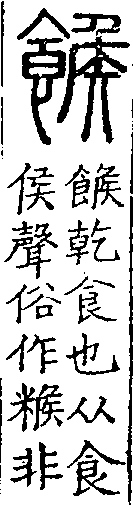 餱
餱乾食也从食
侯聲俗作糇非